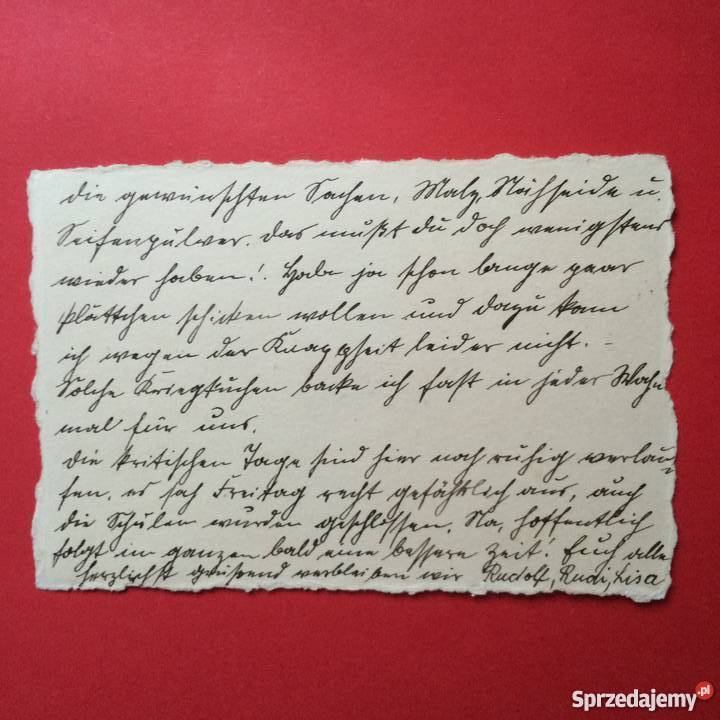 die gewünschten Sachen, Malz, Nähseide u.
Seifenpulver. Das mußt du doch wenigstens
wieder haben! Habe ja schon lange paar
plättchen schicken wollen und dazu kam
ich wegen der Knappheit leider nicht. –
Solche Kriegskuchen backe ich fast in jeder Woche
mal für uns.
Die kritischen Tage sind hier noch ruhig verlau-
fen, es sah Freitag recht gefährlich aus, auch
die Schulen wurden geschlossen. Na, hoffentlich
folgt im ganzen bald eine bessere Zeit! Euch alle
herzlichst grüßend verbleiben wir Rudolf, Rudi, Lisa
Sprzedajemy.pl